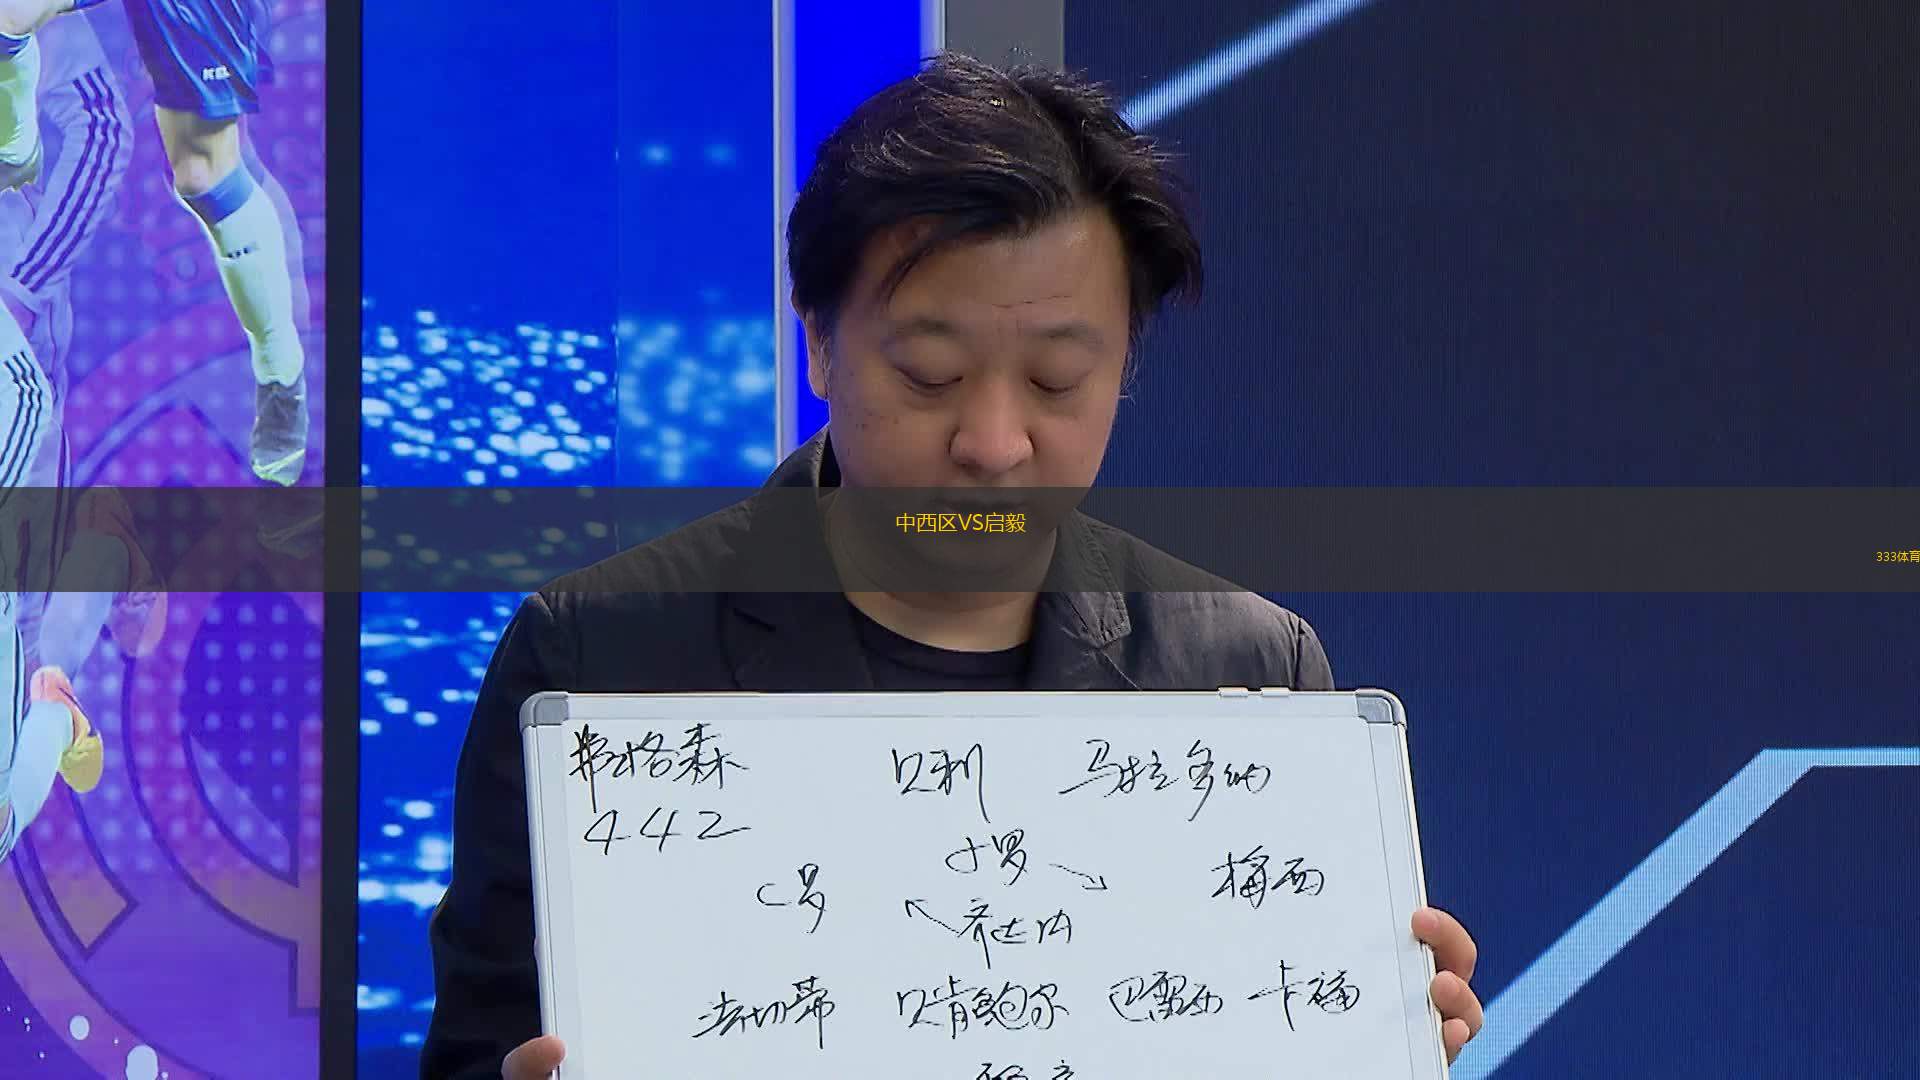 中西区VS启毅
333体育
弗格森 贝利 马拉多纳
442
小罗
C罗 梅西
齐达内
法切蒂 贝肯鲍尔 巴雷西 卡福